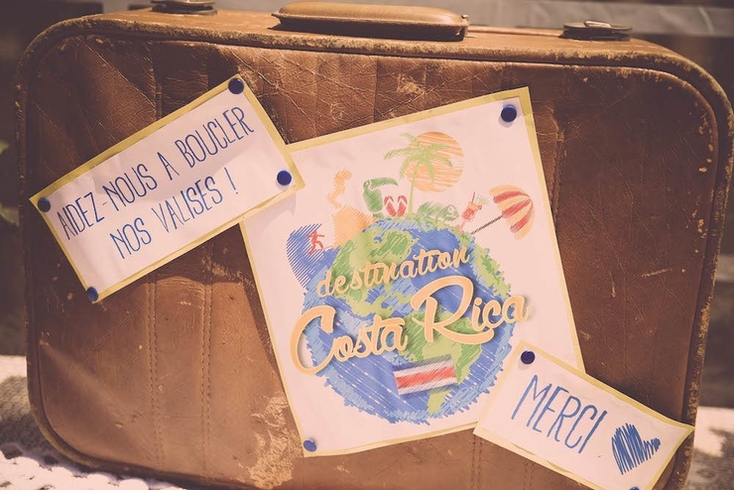 AIDEZ-NOUS A BOUCLER
NOS VALISES !
destination
Costa Rica
MERCI